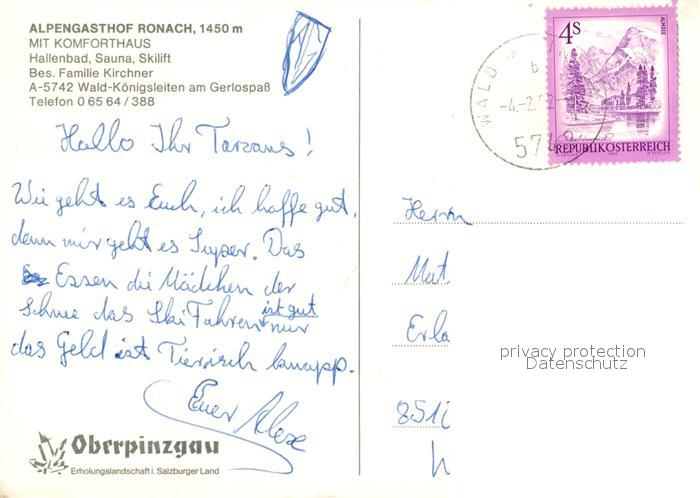 ALPENGASTHOF RONACH, 1450 m
MIT KOMFORTHAUS
Hallenbad, Sauna, Skilift
Bes. Familie Kirchner
A-5742 Wald-Königsleiten am Gerlospaß
Telefon 0 65 64 / 388
Hallo Ihr Tarzans!
Wie geht es Euch, ich hoffe gut,
denn mir geht es Super. Das
Essen die Mädchen der
Schnee das Ski Fahren ist gut nur
das Geld ist Tierisch knapp.
Euer Alex
Oberpinzgau
Erholungslandschaft i. Salzburger Land
4S
ALMSEE
REPUBLIK ÖSTERREICH
WALD
b
-4.-2.
Herrn
Mat
Erla
851
privacy protection
Datenschutz